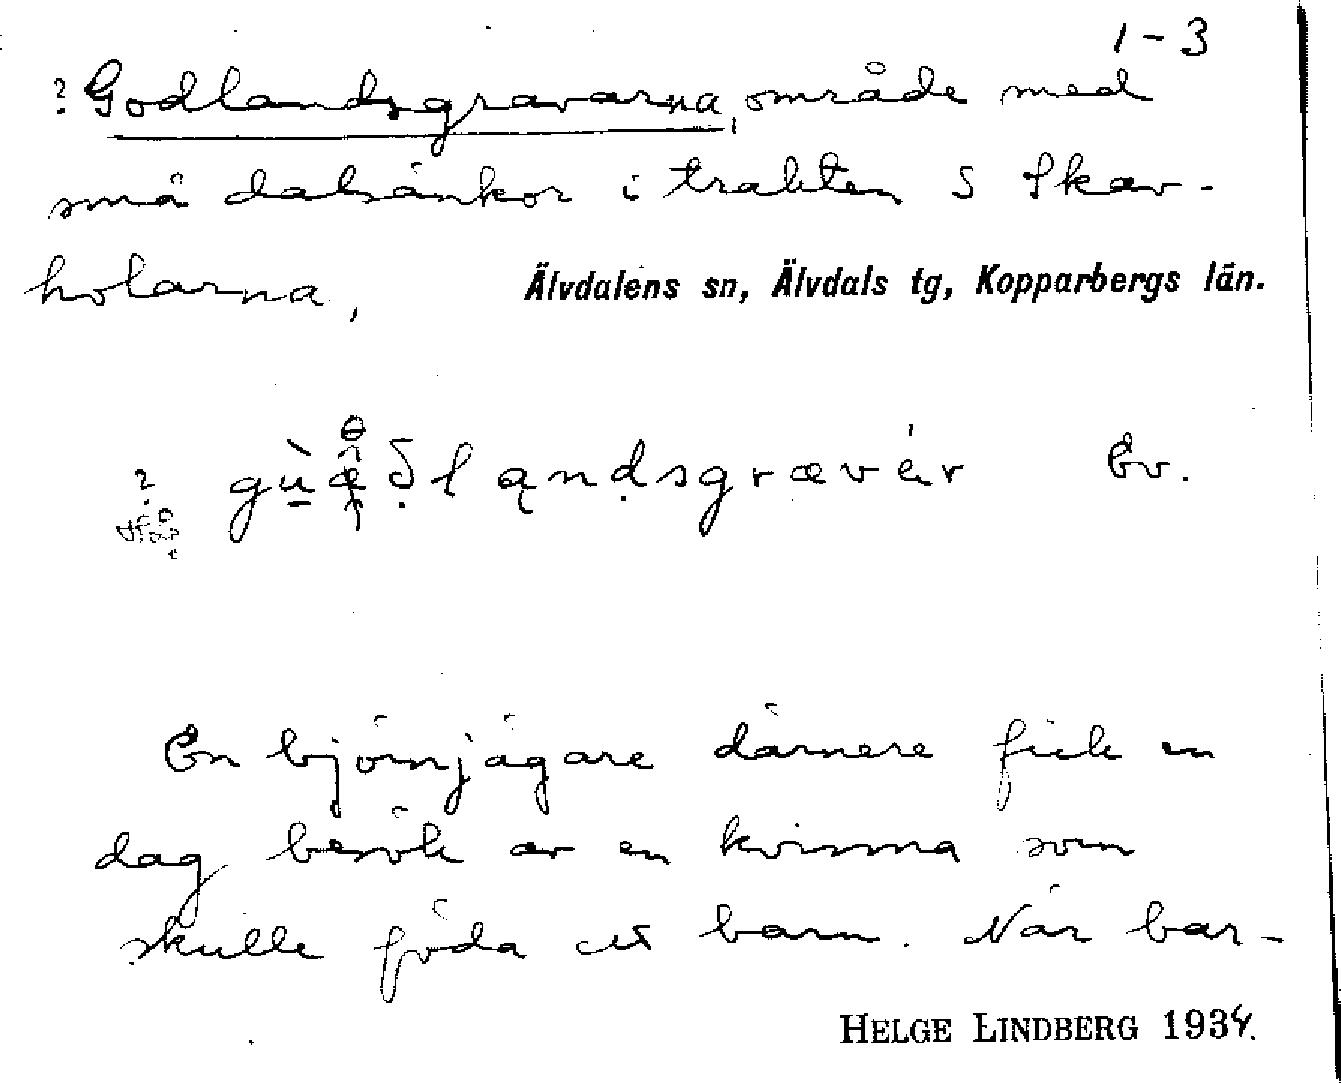 1-3
? Godlandsgravarna, område med
små dalsänkor i trakten S Skav-
holarna,
Älvdalens sn, Älvdals tg, Kopparbergs län.
? Ev.
En björnjägare därnere fick en
dag besök av en kvinna som
skulle föda ett barn. När bar-
HELGE LINDBERG 1934.